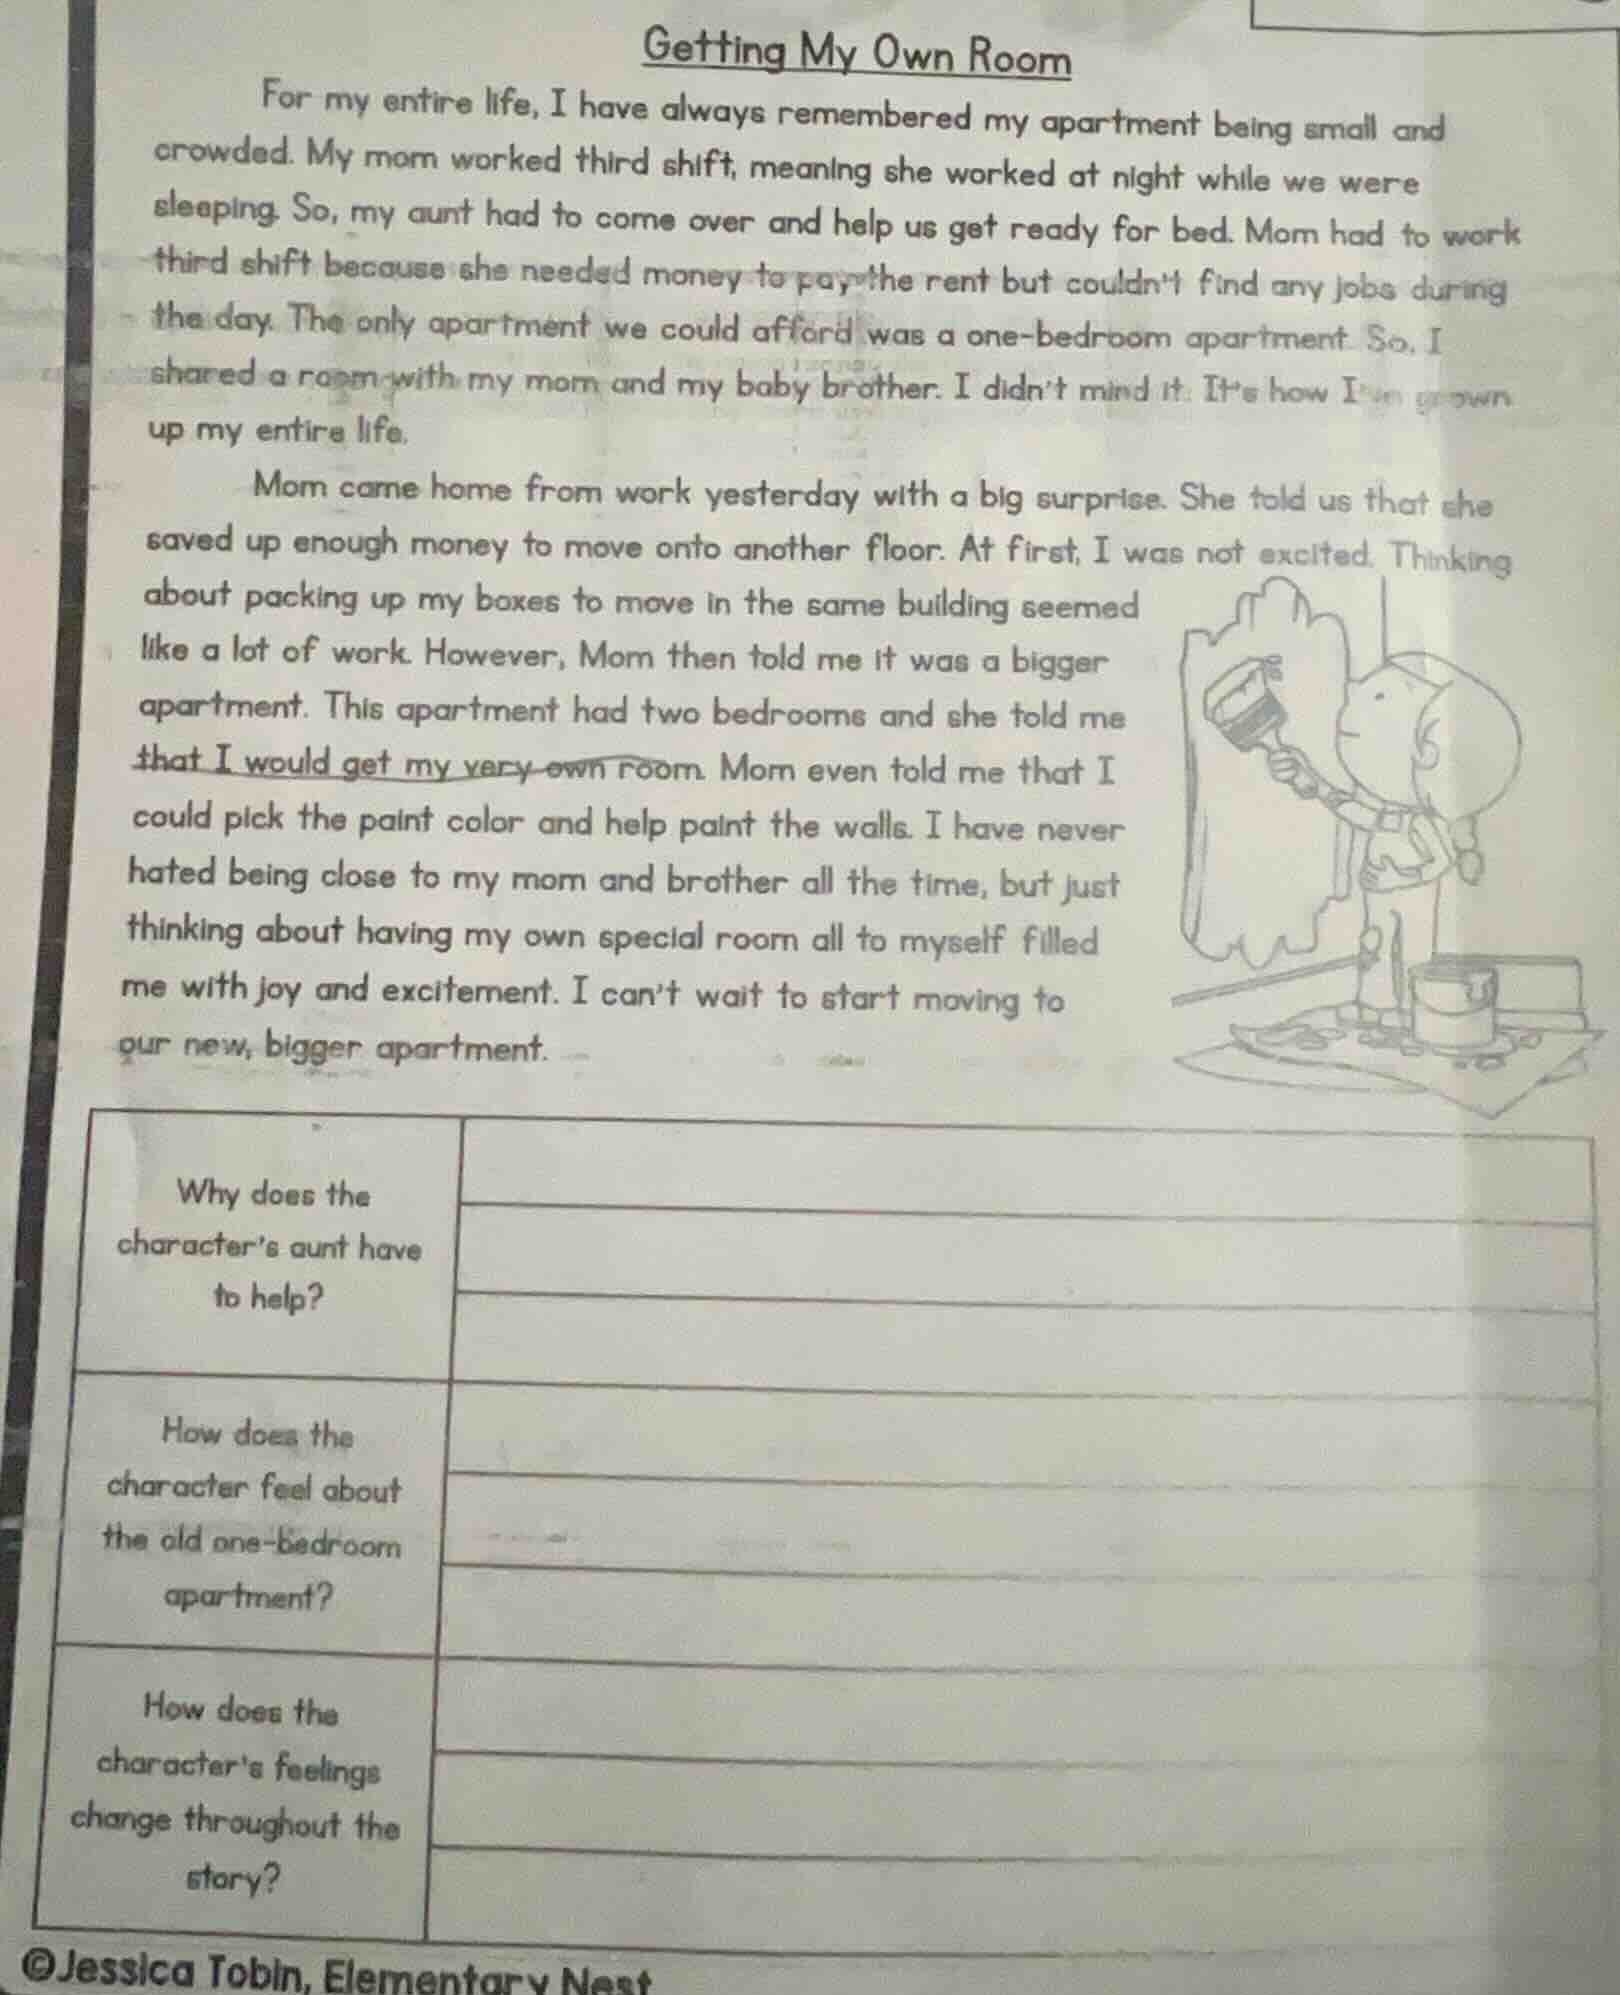 Getting My Own Room
For my entire life, I have always remembered my apartment being small and
crowded. My mom worked third shift, meaning she worked at night while we were
sleeping. So, my aunt had to come over and help us get ready for bed. Mom had to work
third shift because she needed money to pay the rent but couldn't find any jobs during
the day. The only apartment we could afford was a one-bedroom apartment. So, I
shared a room with my mom and my baby brother. I didn't mind it. It's how I've grown
up my entire life.
Mom came home from work yesterday with a big surprise. She told us that she
saved up enough money to move onto another floor. At first, I was not excited. Thinking
about packing up my boxes to move in the same building seemed
like a lot of work. However, Mom then told me it was a bigger
apartment. This apartment had two bedrooms and she told me
that I would get my very own room. Mom even told me that I
could pick the paint color and help paint the walls. I have never
hated being close to my mom and brother all the time, but just
thinking about having my own special room all to myself filled
me with joy and excitement. I can't wait to start moving to
our new, bigger apartment.
Why does the
character's aunt have
to help?
How does the
character feel about
the old one-bedroom
apartment?
How does the
character's feelings
change throughout the
story?
©Jessica Tobin, Elementary Nest